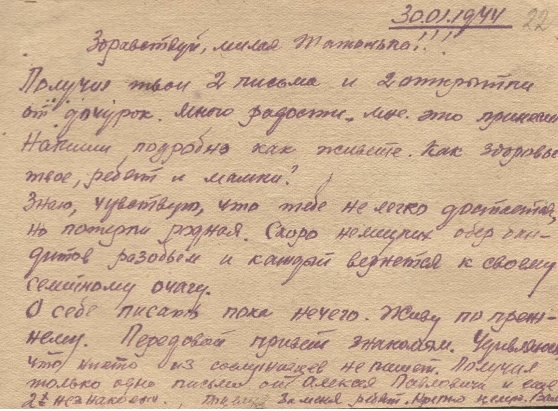 30.01.1944 22
Здравствуй, милая Татонька!!!
Получил твои 2 письма и 2 открытки
от дочурок. Много радости мне это принесли
Напиши подробно как живете. Как здоровье
твое, ребят и мамки?
Знаю, чувствую, что тебе не легко достается,
но потерпи родная. Скоро немецких обер бан-
дитов разобьем и каждый вернется к своему
семейному очагу.
О себе писать пока нечего. Живу по преж-
нему. Передавай привет знакомым. Удивляюсь
что никто из не пишет. Получил
только одно письмо от Алексея Павловича и еще
2 незнаком. за меня ребят. Крепко целую.